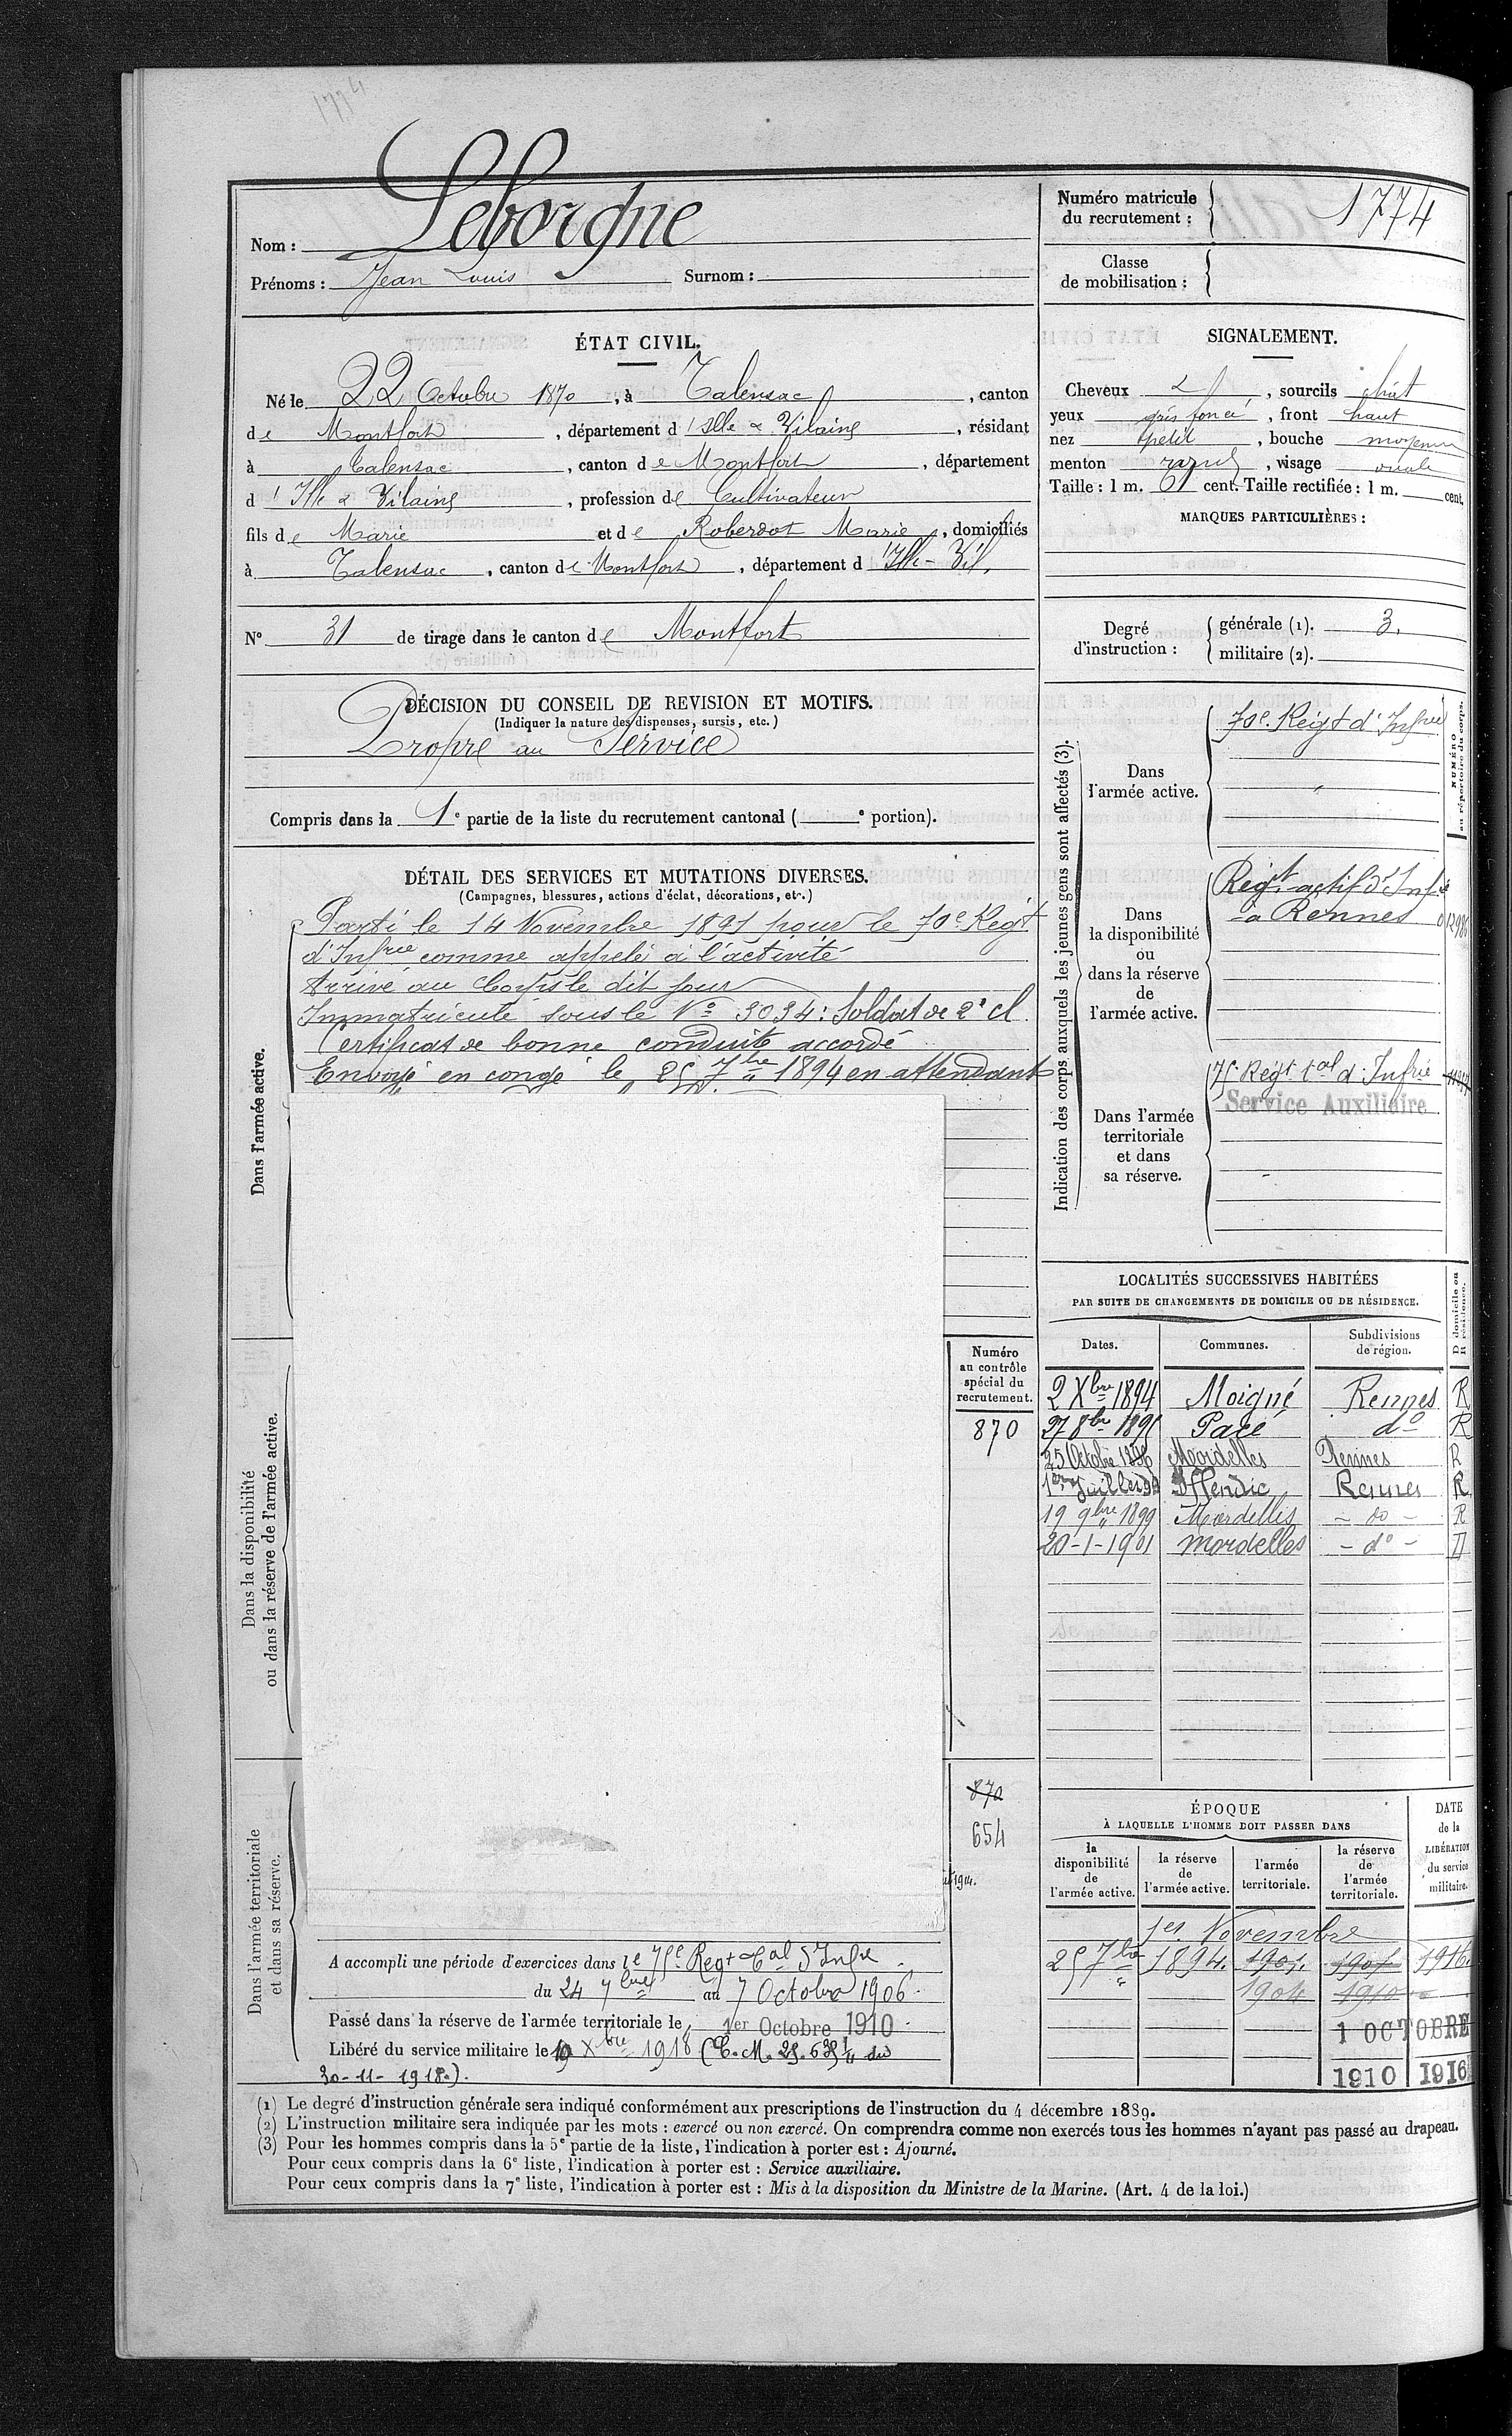 1774
Nom : Leborgne
Prénoms : Jean Louis Surnom :
Numéro matricule du recrutement : 1774
Classe de mobilisation :
ÉTAT CIVIL.
Né le 22 Octobre 1870, à Talensac, canton
de Montfort, département d'Ille & Vilaine, résidant
à Talensac, canton de Montfort, département
d'Ille & Vilaine, profession de Cultivateur
fils de Marie et de Roberdot Marie, domiciliés
à Talensac, canton de Montfort, département d'Ille-Vil.
N° 31 de tirage dans le canton de Montfort
SIGNALEMENT.
Cheveux d, sourcils chât
yeux gris foncé, front haut
nez petit, bouche moyenne
menton rond, visage ovale
Taille : 1 m. 61 cent. Taille rectifiée : 1 m. cent.
MARQUES PARTICULIÈRES :
Degré d'instruction : générale (1). 3.
militaire (2).
DÉCISION DU CONSEIL DE REVISION ET MOTIFS.
(Indiquer la nature des dispenses, sursis, etc.)
Propre au Service
Compris dans la 1e partie de la liste du recrutement cantonal ( e portion).
DÉTAIL DES SERVICES ET MUTATIONS DIVERSES.
(Campagnes, blessures, actions d'éclat, décorations, etc.)
Dans l'armée active.
Parti le 14 Novembre 1891 pour le 70e Régt
d'Infrie comme appelé à l'activité
Arrivé au Corps le dit jour
Immatriculé sous le No 3034: Soldat de 2e cl.
Certificat de bonne conduite accordé
Envoyé en congé le 25 7bre 1894 en attendant
Dans la disponibilité
ou dans la réserve de l'armée active.
Numéro
au contrôle
spécial du
recrutement.
870
Dans l'armée territoriale
et dans sa réserve.
870
654
1914.
A accompli une période d'exercices dans le 75e Regt tal d'Infie
du 24 7bre au 7 Octobre 1906.
Passé dans la réserve de l'armée territoriale le 1er Octobre 1910.
Libéré du service militaire le 10 Xbre 1918 (C. M. 25.638 du
30-11-1918.).
Indication des corps auxquels les jeunes gens sont affectés (3).
NUMÉRO
au répertoire du corps.
Dans
l'armée active.
70e Régt d'Infrie
Dans
la disponibilité
ou
dans la réserve
de
l'armée active.
Régt actif d'Infie
à Rennes
Dans l'armée
territoriale
et dans
sa réserve.
75 Régt tal d'Infrie
Service Auxiliaire
LOCALITÉS SUCCESSIVES HABITÉES
PAR SUITE DE CHANGEMENTS DE DOMICILE OU DE RÉSIDENCE.
Dates. Communes. Subdivisions de région. D domicile ou R résidence.
2 Xbre 1894 Moigné Rennes R
27 8bre 1895 Pacé do R
25 Octobre 1896 Mordelles Rennes R
1er Juillet Iffendic Rennes R
19 9bre 1899 Mordelles - do - R
20-1-1901 Mordelles - do - D
ÉPOQUE
À LAQUELLE L'HOMME DOIT PASSER DANS
la disponibilité de l'armée active.
la réserve de l'armée active.
l'armée territoriale.
la réserve de l'armée territoriale.
DATE de la LIBÉRATION du service militaire.
1er Novembre
25 7bre 1894. 1901. 1907 1916.
1904 1910
1 OCTOBRE
1910 1916
(1) Le degré d'instruction générale sera indiqué conformément aux prescriptions de l'instruction du 4 décembre 1889.
(2) L'instruction militaire sera indiquée par les mots : exercé ou non exercé. On comprendra comme non exercés tous les hommes n'ayant pas passé au drapeau.
(3) Pour les hommes compris dans la 5e partie de la liste, l'indication à porter est : Ajourné.
Pour ceux compris dans la 6e liste, l'indication à porter est : Service auxiliaire.
Pour ceux compris dans la 7e liste, l'indication à porter est : Mis à la disposition du Ministre de la Marine. (Art. 4 de la loi.)